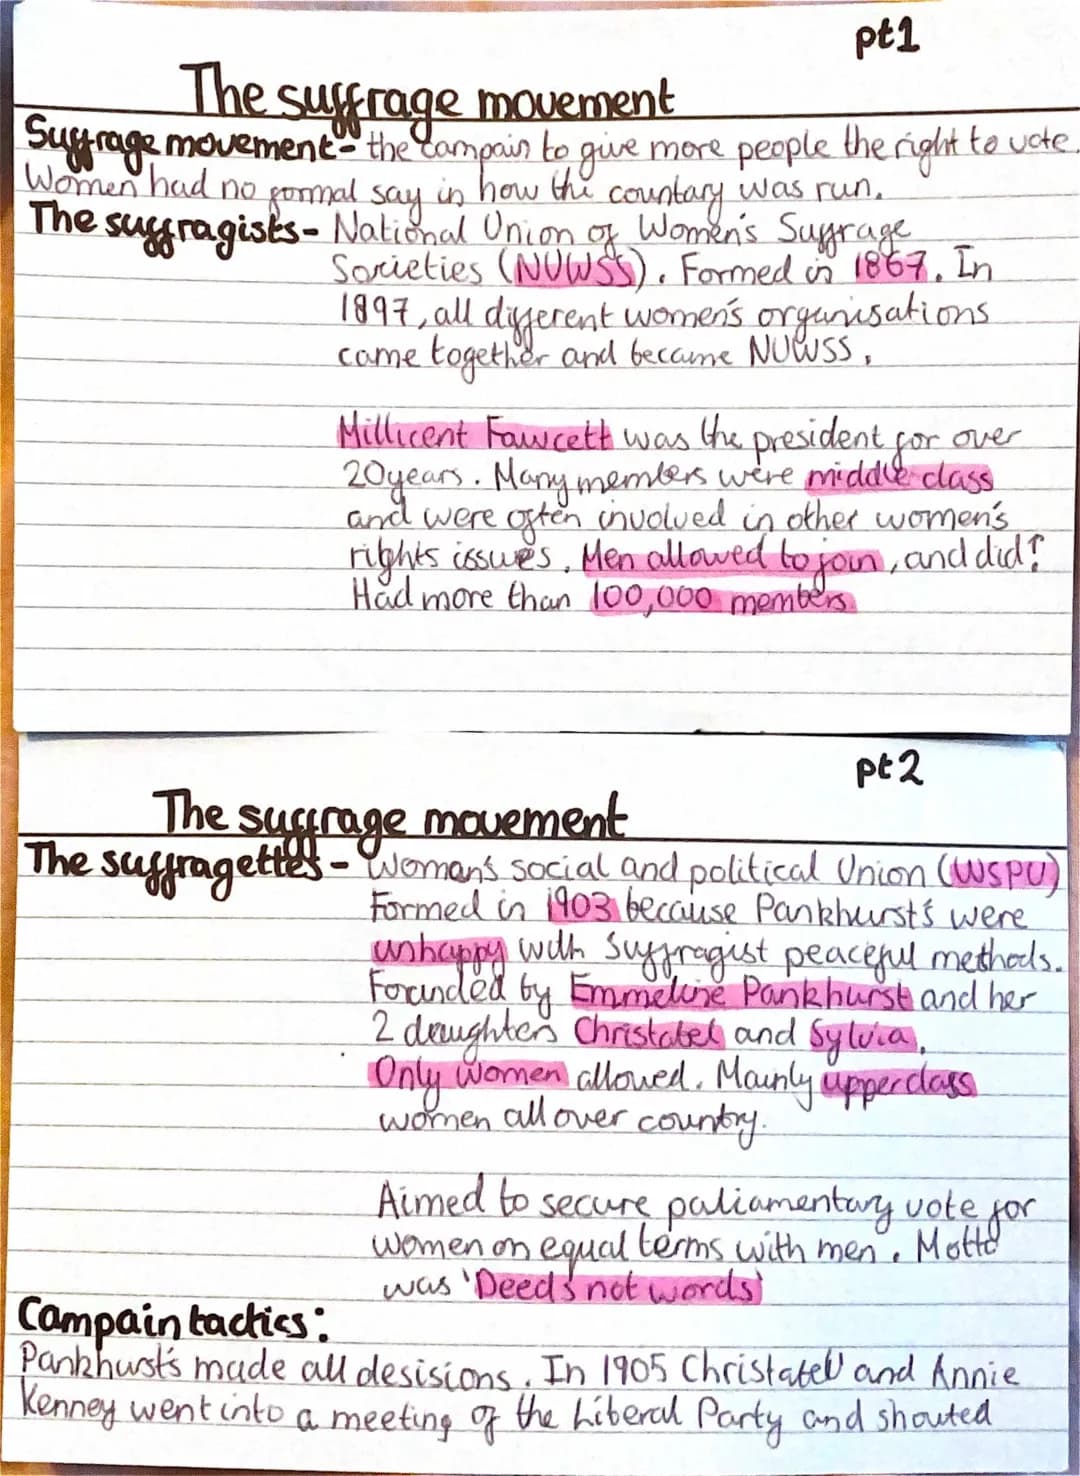 pt1
The suffrage movement
Suffrage movement- the campain to give more people the right to vote.
Women had no formal say in how the countary was run.
The suffragists- National Union of Women's Suffrage
Societies (NUWSS). Formed in 1867. In
1897, all different women's organisations
came together and became NUWSS.
Millicent Fawcett was the president for over
20 years. Many members were middle class
and were often involved in other women's
rights issues. Men allowed to join, and did!
Had more than 100,000 members.
pt2
The suffrage movement
The suffragettes - Woman's social and political Union (WSPU)
Formed in 1903 because Pankhurst's were
unhappy with Suffragist peaceful methods.
Founded by Emmeline Pankhurst and her
2 daughters Christabel and Sylvia.
Only women allowed. Mainly upperclass
women all over country.
Aimed to secure paliamentary vote for
women on equal terms with men. Motto
was 'Deeds not words'
Campain tactics:
Pankhurst's made all desisions. In 1905 Christabel and Annie
Kenney went into a meeting of the Liberal Party and shouted